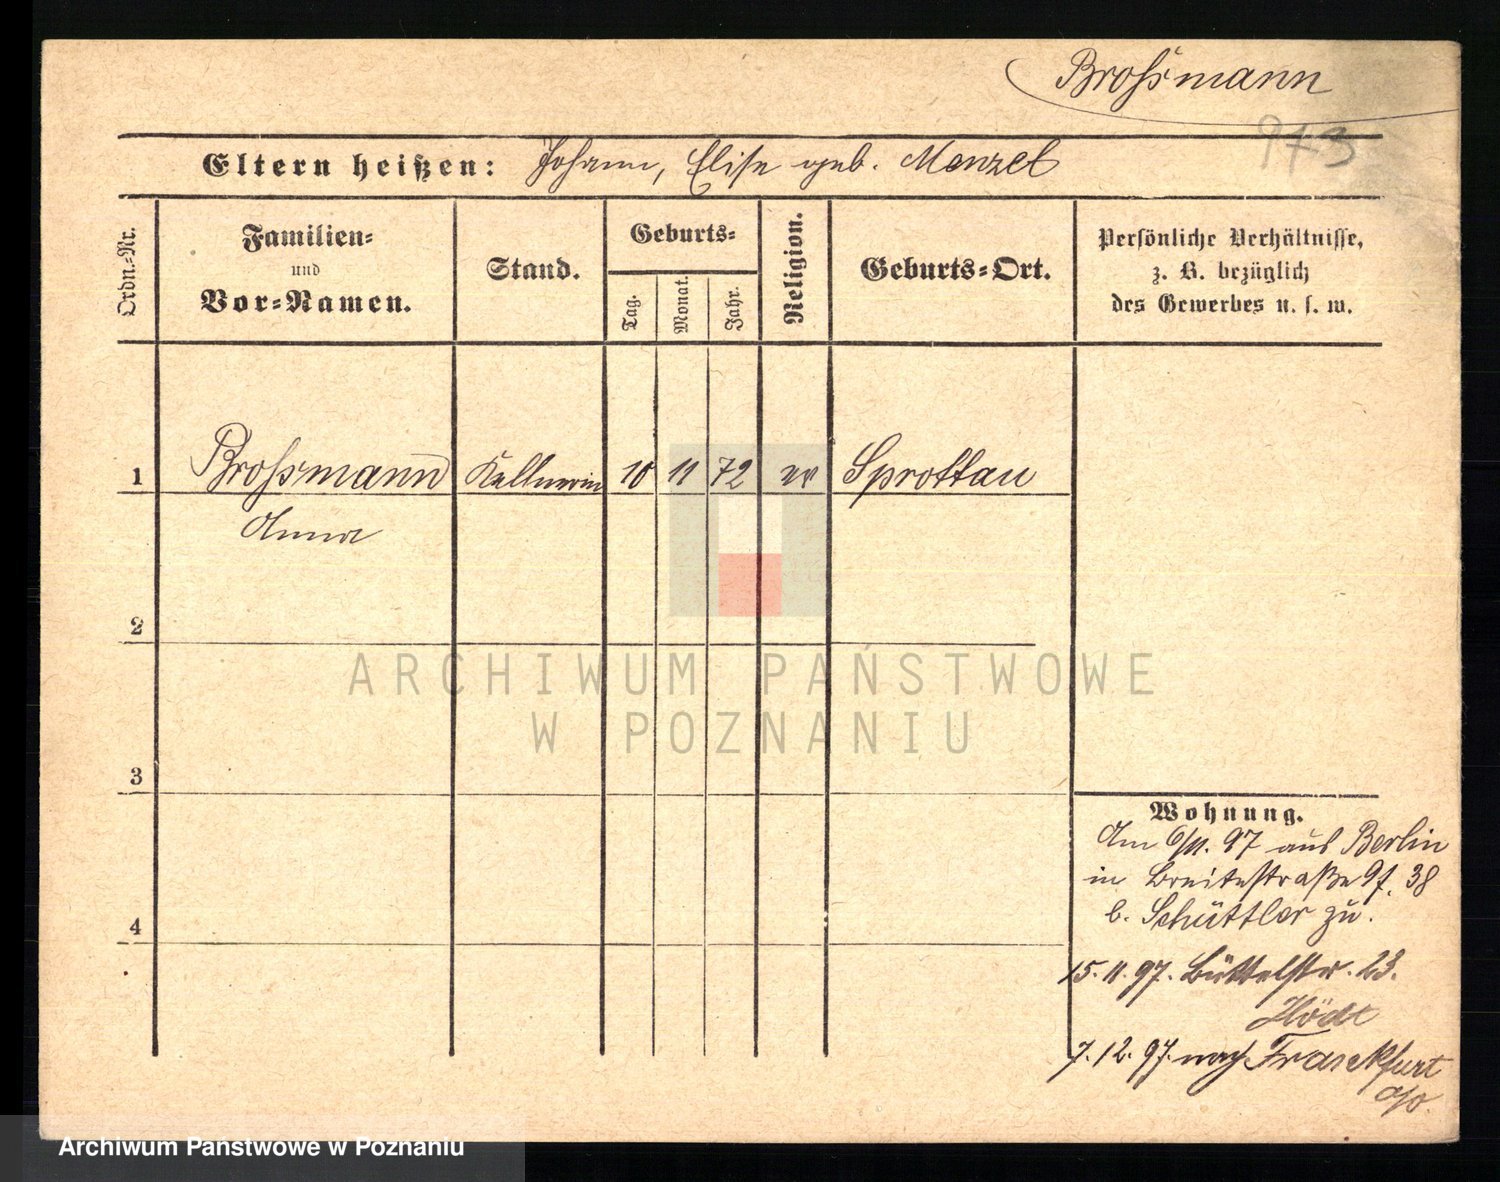 Broſsmann
973
Eltern heißen: Johann, Elise geb. Menzel
Ordn.-Nr.
Familien-
und
Vor-Namen.
Stand.
Geburts-
Tag.
Monat.
Jahr.
Religion.
Geburts-Ort.
Persönliche Verhältnisse,
z. B. bezüglich
des Gewerbes u. s. w.
1 Broſsmann Kellnerin 10 11 72 ev Sprottau
Anna
2
ARCHIWUM PAŃSTWOWE
W POZNANIU
3
Wohnung.
Am 6/11. 97 aus Berlin
in Breitestraße 38
b. Schüttler zu.
4
15. 11. 97. Büttelstr. 23.
Hödt
7. 12. 97. nach Franckfurt
a/o.
Archiwum Państwowe w Poznaniu